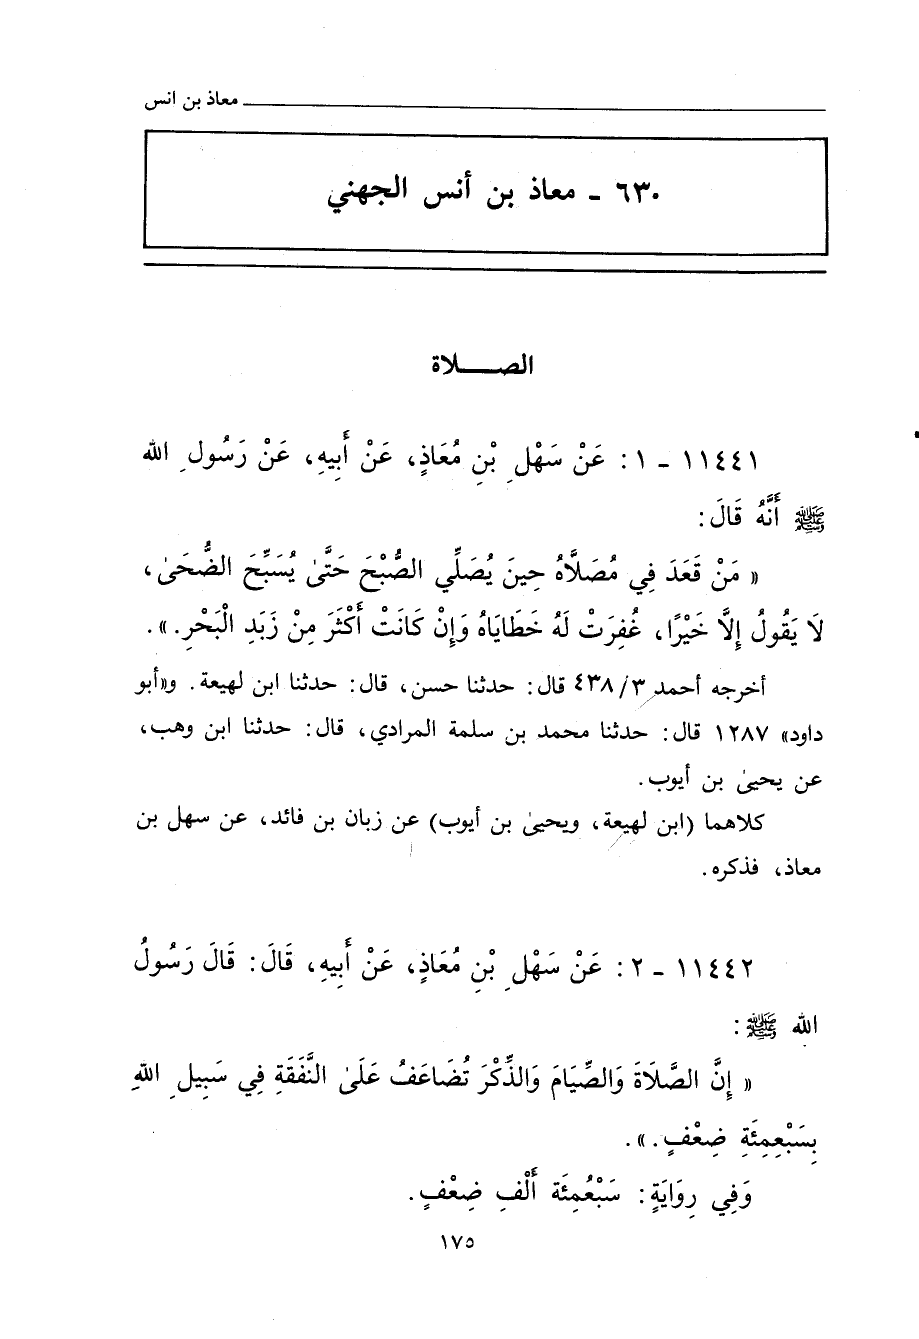 معاذ بن انس
٦٣٠ - معاذ بن أنس الجهني
الصـــــلاة
١١٤٤١ - ١ : عَنْ سَهْلِ بْنِ مُعَاذٍ، عَنْ أَبِيهِ، عَنْ رَسُولِ الله
ﷺ أَنَّهُ قَالَ:
« مَنْ قَعَدَ فِي مُصَلَّاهُ حِينَ يُصَلِّي الصُّبْحَ حَتَّىٰ يُسَبِّحَ الضُّحَىٰ،
لَا يَقُولُ إِلَّا خَيْرًا، غُفِرَتْ لَهُ خَطَايَاهُ وَإِنْ كَانَتْ أَكْثَرَ مِنْ زَبَدِ الْبَحْرِ.».
أخرجه أحمد ٤٣٨/٣ قال: حدثنا حسن، قال: حدثنا ابن لهيعة. و«أبو
داود» ١٢٨٧ قال: حدثنا محمد بن سلمة المرادي، قال: حدثنا ابن وهب،
عن يحيىٰ بن أيوب.
كلاهما (ابن لهيعة، ويحيىٰ بن أيوب) عن زبان بن فائد، عن سهل بن
معاذ، فذكره.
١١٤٤٢ - ٢ : عَنْ سَهْلِ بْنِ مُعَاذٍ، عَنْ أَبِيهِ، قَالَ: قَالَ رَسُولُ
الله ﷺ:
« إِنَّ الصَّلَاةَ وَالصِّيَامَ وَالذِّكْرَ تُضَاعَفُ عَلَىٰ النَّفَقَةِ فِي سَبِيلِ اللهِ
بِسَبْعِمِئَةِ ضِعْفٍ.».
وَفِي رِوَايَةٍ: سَبْعُمِئَة أَلْفِ ضِعْفٍ.
١٧٥